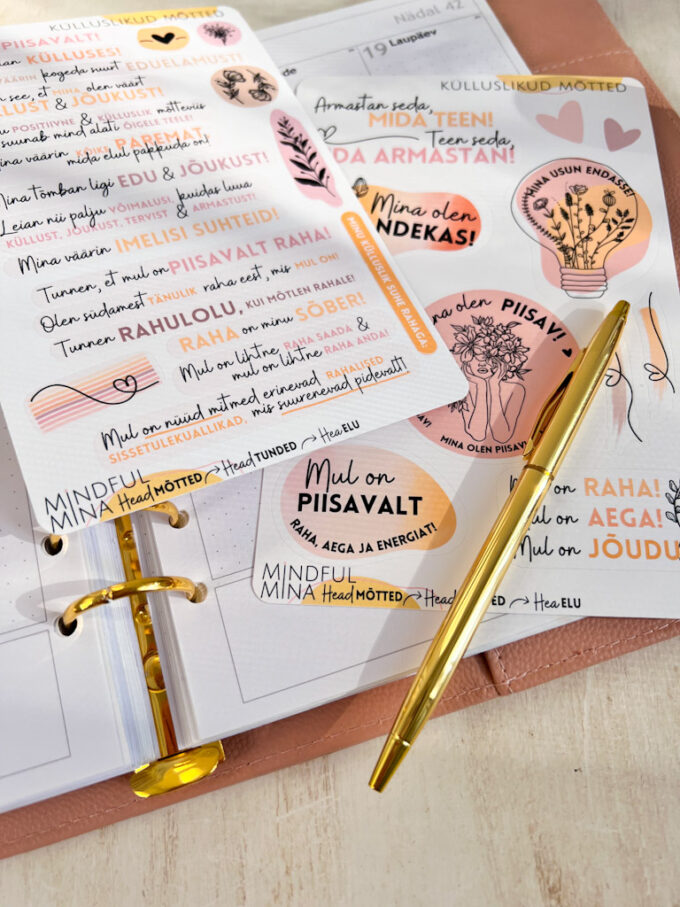 KÜLLUSLIKUD MÕTTED
PIISAVALT!
KÜLLUSES!
kogeda suurt EDUELAMUST!
see, et MINA olen väärt
& JÕUKUST!
POSITIIVNE & KÜLLUSLIK mõtteviis
suunab mind alati ÕIGELE TEELE!
väärin KÕIKE PAREMAT,
mida elul pakkuda on!
Mina tõmban ligi EDU & JÕUKUST!
Leian nii palju VÕIMALUSI, kuidas luua
KÜLLUST, JÕUKUST, TERVIST & ARMASTUST!
Mina väärin IMELISI SUHTEID!
Tunnen, et mul on PIISAVALT RAHA!
Olen südamest TÄNULIK raha eest, mis MUL ON!
Tunnen RAHULOLU, KUI MÕTLEN RAHALE!
RAHA on minu SÕBER!
Mul on lihtne RAHA SAADA &
mul on lihtne RAHA ANDA!
MINU KÜLLUSLIK SUHE RAHAGA:
Mul on nüüd mitmed erinevad RAHALISED
SISSETULEKUALLIKAD, mis suurenevad pidevalt!
MINDFUL
MINA Head MÕTTED Head TUNDED Hea ELU
Nädal 42
19 Laupäev
KÜLLUSLIKUD MÕTTED
Armastan seda,
MIDA TEEN!
Teen seda,
ARMASTAN!
MINA USUN ENDASSE!
Mina olen
olen PIISAV!
MINA OLEN PIISAV!
Mul on
PIISAVALT
RAHA, AEGA JA ENERGIAT!
on RAHA!
Mul on AEGA!
Mul on JÕUDU
MINDFUL
MINA Head MÕTTED Hea ELU